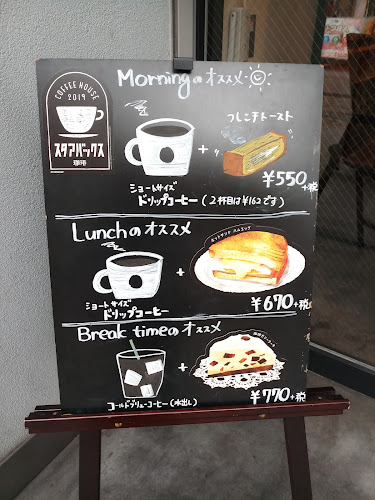 Morningのオススメ
COFFEE HOUSE
2019
スタアバックス
珈琲
+
つしこ手トースト
¥550+税
ショートサイズ
ドリップコーヒー(2杯目は¥162です)
Lunchのオススメ
+
ショートサイズ
ドリップコーヒー
¥670+税
Break timeのオススメ
+
コールドブリューコーヒー(水出し)
¥770+税